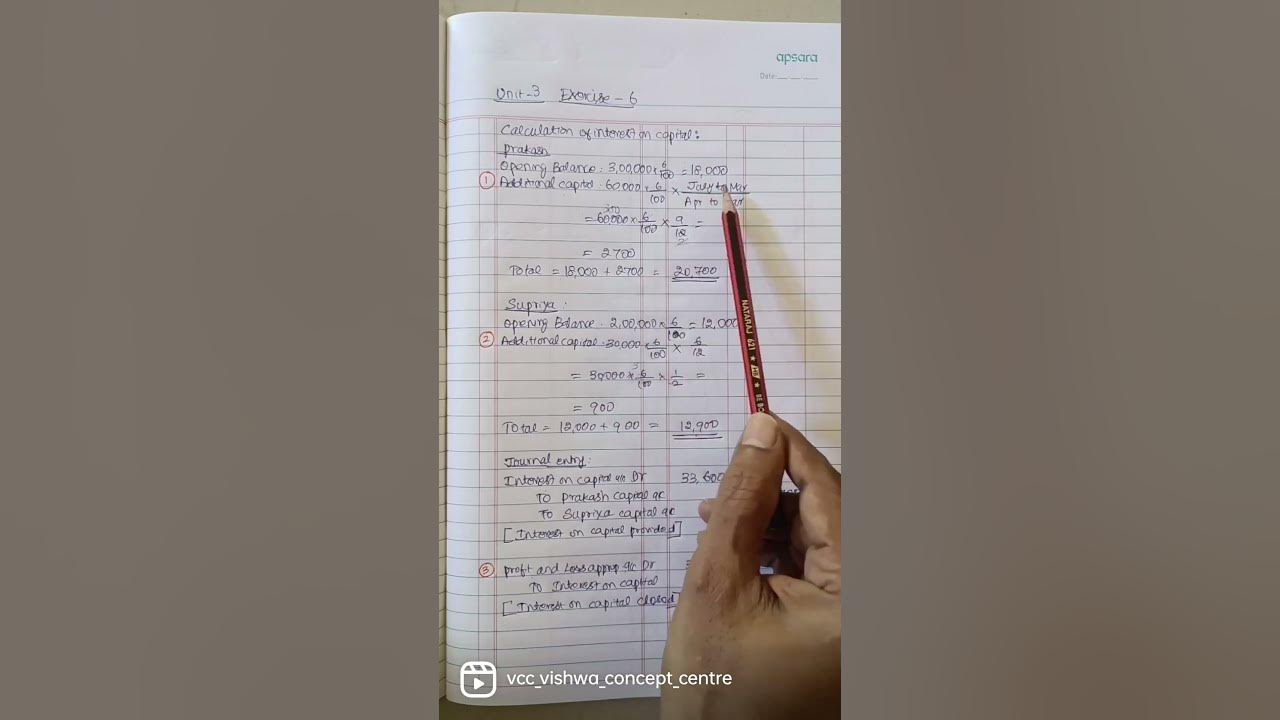 apsara
Date:
Unit-3 Exercise - 6
Calculation of interest on capital:
Prakash
Opening Balance : 3,00,000 × 6/100 = 18,000
① Additional capital : 60000 × 6/100 × July to Mar / Apr to
= 60000 × 6/100 × 9/12 =
= 2700
Total = 18,000 + 2700 = 20,700
Supriya :
Opening Balance : 2,00,000 × 6/100 = 12,000
② Additional capital : 30,000 × 6/100 × 6/12
= 30000 × 6/100 × 1/2 =
= 900
Total = 12,000 + 900 = 12,900
Journal entry :
Interest on capital a/c Dr 33,600
To Prakash capital a/c
To Supriya capital a/c
[Interest on capital provided]
③ profit and Loss approp a/c Dr
To Interest on capital
[Interest on capital closed]
NATARAJ 621 HB
vcc_vishwa_concept_centre